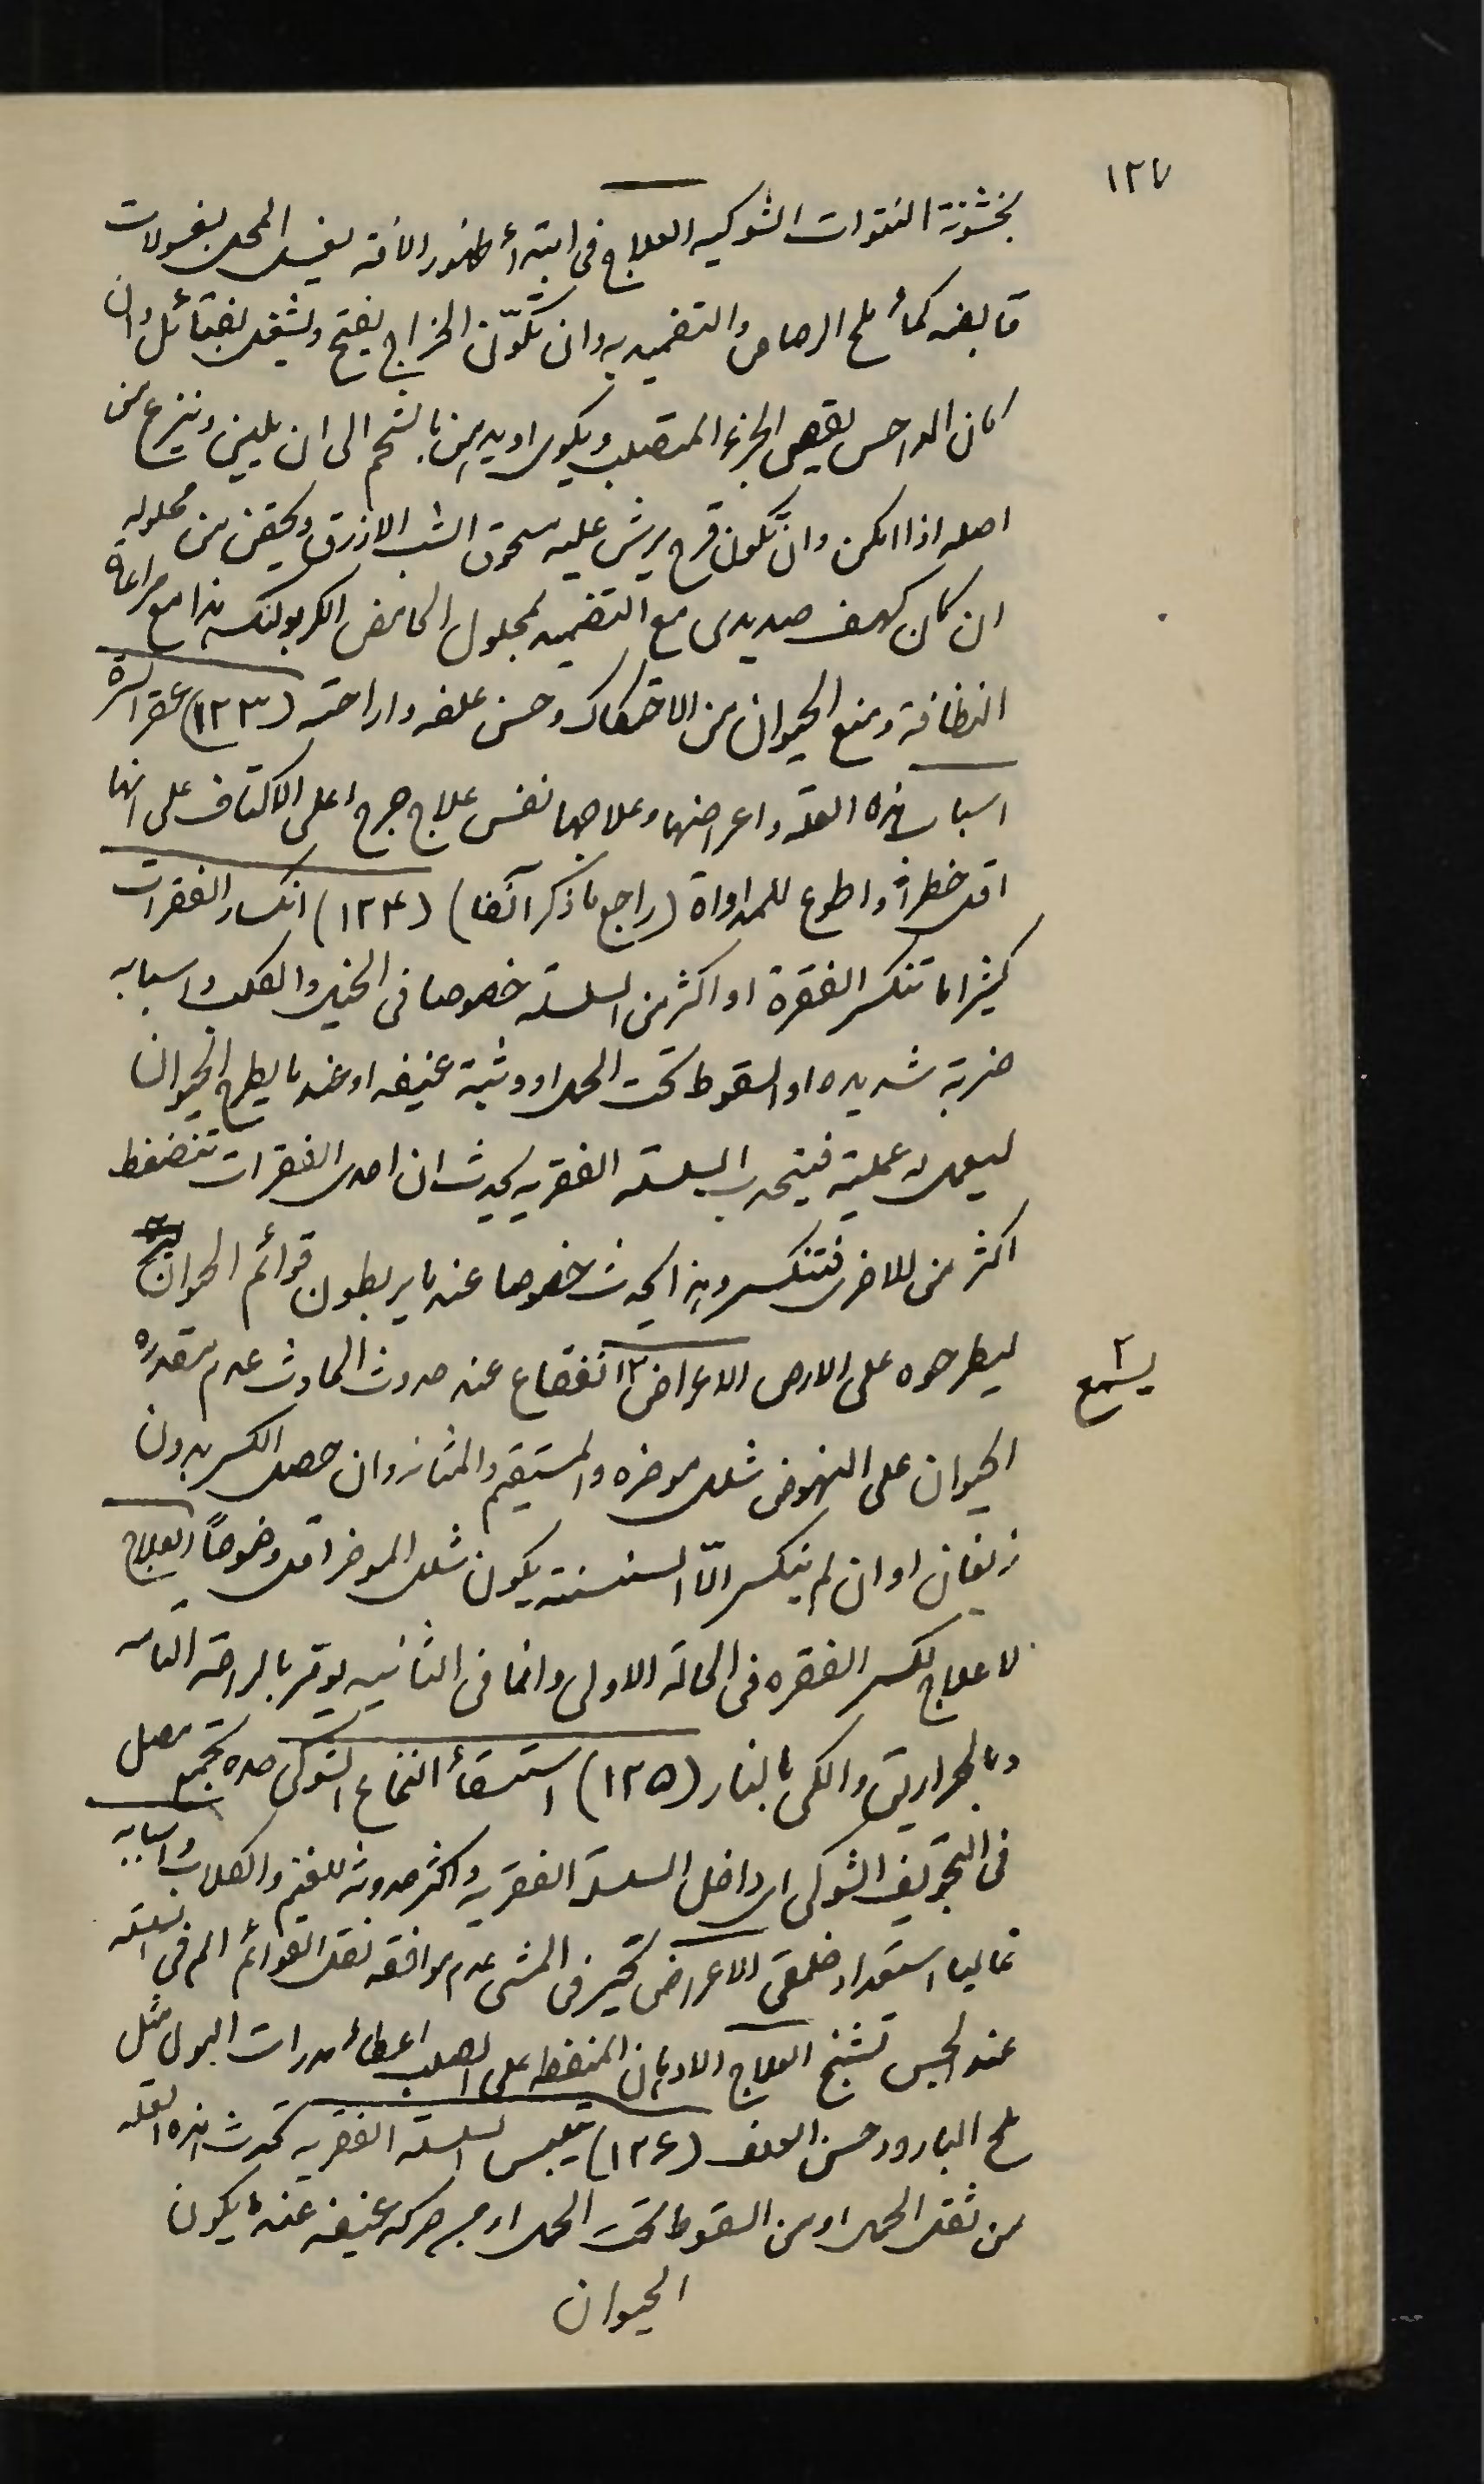 ١٢٧
بخشونة النتوات الشوكيه العلاج فى ابتدأ ظهور الافة يغسل المحل بغسولات
قابضه كمأ ملح الرصاص والتضميد به وان تكوّن الخراج يفتح ويشغل بفتائل وان
كان الداحس يقص الجزء المتصلب ويكوى او يدهن بالشحم الى ان يلين وينزع من
اصله اذا امكن وان تكون قرح يرش عليه مسحوق الشب الازرق ويحقن من محلوله
ان كان كهف صديدى مع التضميد بمحلول الحامض الكربولنك هذا مع مراعاة
النظافة ومنع الحيوان من الاحتكاك وحسن علفه واراحته (١٢٣) عقر السرة
اسباب هذه العلة واعراضها وعلاجها نفس علاج جرح اعلى الاكتاف على انها
اقل خطرا واطوع للمداواة (راجع ما ذكر آنفا) (١٢٤) انكسار الفقرات
كثيرا ما تنكسر الفقرة او اكثر من السلسلة خصوصا فى الخيل والكلاب واسبابه
ضربة شديده او السقوط تحت الحمل او وثبة عنيفه او عند ما يطرح الحيوان
ليعمل له عملية فينحدب السلسلة الفقريه بحيث ان احدى الفقرات تنضغط
اكثر من الاخرى فتنكسر وهذا يحدث خصوصا عند ما يربطون قوائم الحيوان
ليطرحوه على الارض الاعراض ٢ انفقاع عند حدوث الحادث عدم مقدرة
٢ يسمع
الحيوان على النهوض شلل موخره والمستقيم والمثانه وان حصل الكسر بدون
زيغان او ان لم ينكسر الّا السنسنة يكون شلل الموخر اقل وضوحاً العلاج
لا علاج لكسر الفقره فى الحالة الاولى وانما فى الثانيه يوقر بالراحة التامه
وبالحراريق والكى بالنار (١٢٥) استسقأ النخاع الشوكى حده تجمع مصل
فى التجويف الشوكى اى داخل السلسلة الفقريه واكثر حدوثه للغنم والكلاب واسبابه
غالبا استعداد خلقى الاعراض تحير فى المشى عدم موافقه نقل القوائم الم فى السلسلة
عند الجس تشنج العلاج الادهان المنفطه على الصلب اعطأ مدرات البول مثل
ملح البارود حسن العلف (١٢٦) تيبس السلسلة الفقريه تحدث هذه العله
من ثقل الحمل او من السقوط تحت الحمل او من حركه عنيفه عندما يكون
الحيوان